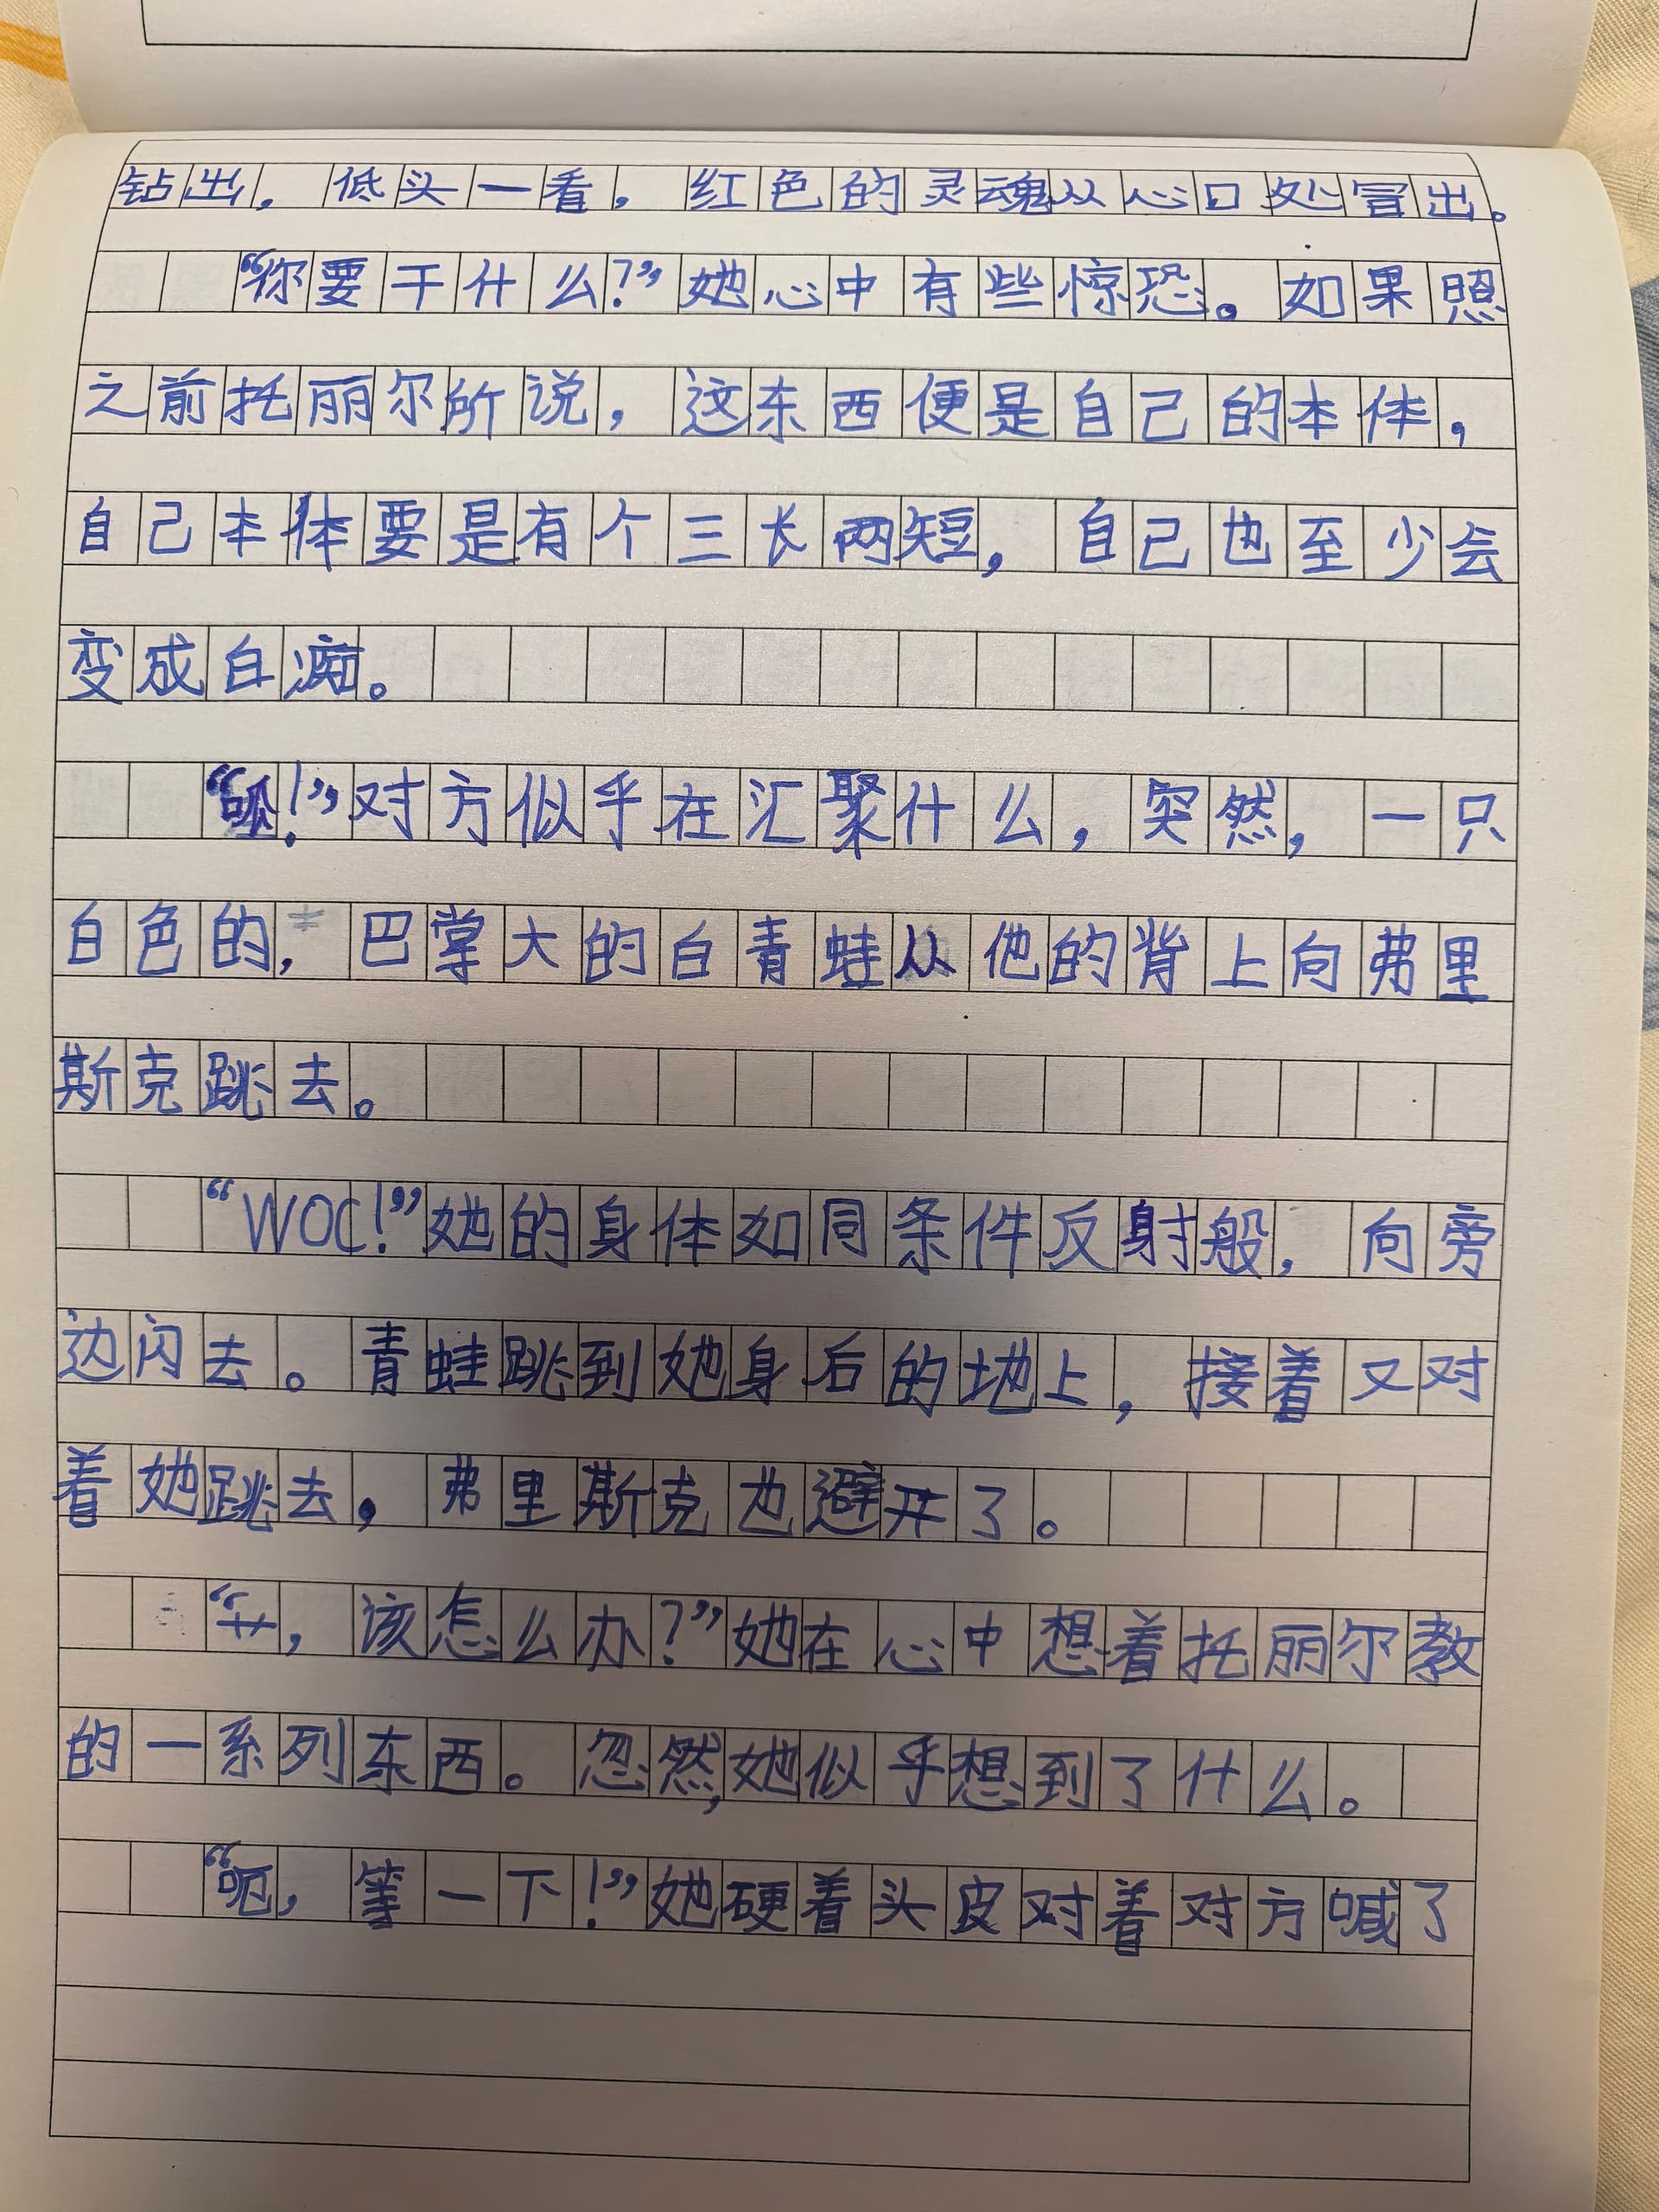 钻出，低头一看，红色的灵魂从心口处冒出。
“你要干什么？”她心中有些惊恐。如果照
之前托丽尔所说，这东西便是自己的本体，
自己本体要是有个三长两短，自己也至少会
变成白痴。
“呱！”对方似乎在汇聚什么，突然，一只
白色的，巴掌大的白青蛙从他的背上向弗里
斯克跳去。
“WOC！”她的身体如同条件反射般，向旁
边闪去。青蛙跳到她身后的地上，接着又对
着她跳去，弗里斯克也避开了。
“艹，该怎么办？”她在心中想着托丽尔教
的一系列东西。忽然，她似乎想到了什么。
“呃，等一下！”她硬着头皮对着对方喊了